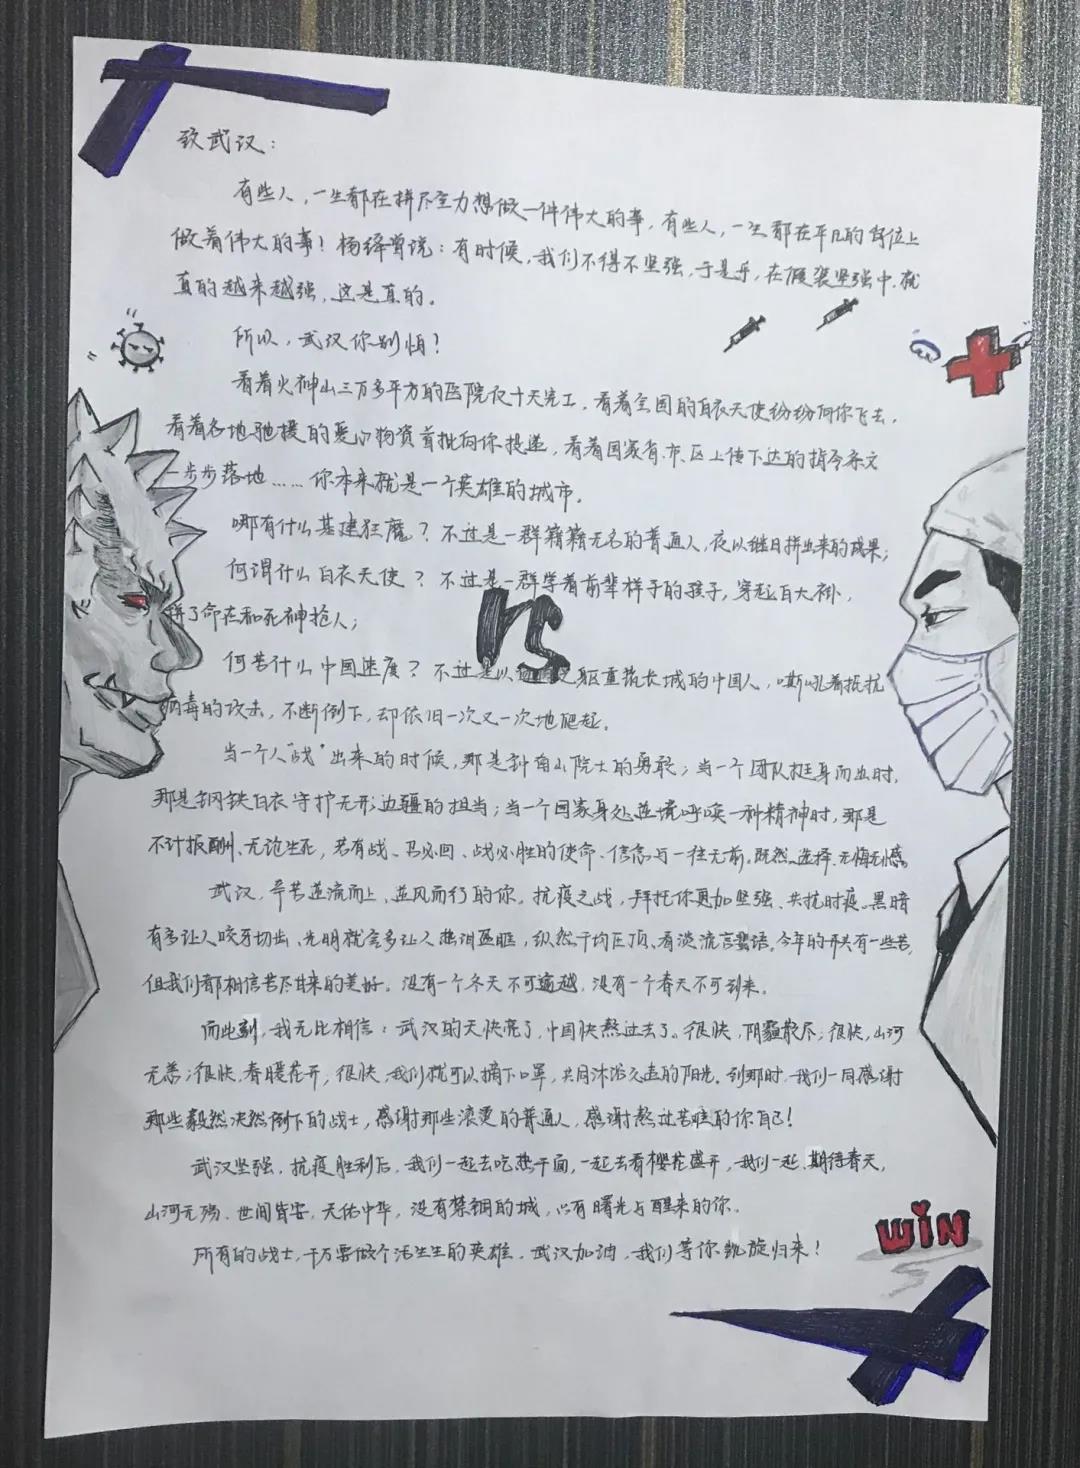 致武汉：
有些人，一生都在拼尽全力想做一件伟大的事，有些人，一生都在平凡的岗位上
做着伟大的事！杨绛曾说：有时候，我们不得不坚强，于是乎，在假装坚强中，就
真的越来越强，这是真的。
所以，武汉你别怕！
看着火神山三万多平方的医院仅十天完工，看着全国的白衣天使纷纷向你飞去，
看着各地驰援的爱心物资首批向你投递，看着国家省、市、区上传下达的指令条文
一步步落地……你本来就是一个英雄的城市。
哪有什么基建狂魔？不过是一群籍籍无名的普通人，夜以继日拼出来的成果；
何谓什么白衣天使？不过是一群学着前辈样子的孩子，穿起白大褂，
拼了命在和死神抢人；
何苦什么中国速度？不过是以 躯重筑长城的中国人，嘶吼着抵抗
病毒的攻击，不断倒下，却依旧一次又一次地爬起。
VS
当一个人“战”出来的时候，那是钟南山院士的勇敢；当一个团队挺身而出时，
那是钢铁白衣守护无形边疆的担当；当一个国家身处逆境呼唤一种精神时，那是
不计报酬、无论生死，若有战、召必回、战必胜的使命、信念与一往无前。既然选择、无悔无憾。
武汉，辛苦逆流而上、逆风而行的你。抗疫之战，拜托你更加坚强、共抗时疫。黑暗
有多让人咬牙切齿、光明就会多让人热泪盈眶，纵然千均压顶、看淡流言蜚语。今年的开头有一些苦，
但我们都相信苦尽甘来的美好。没有一个冬天不可逾越，没有一个春天不可到来。
而此刻，我无比相信：武汉的天快亮了，中国快熬过去了。很快，阴霾散尽；很快，山河
无恙；很快，春暖花开；很快，我们就可以摘下口罩，共同沐浴久违的阳光。到那时，我们一同感谢
那些毅然决然倒下的战士，感谢那些滚烫的普通人，感谢熬过苦难的你自己！
武汉坚强，抗疫胜利后，我们一起去吃热干面，一起去看樱花盛开，我们一起，期待春天，
山河无殇、世间皆安，天佑中华，没有禁锢的城，只有曙光与醒来的你。
所有的战士，千万要做个活生生的英雄，武汉加油，我们等你凯旋归来！
WIN